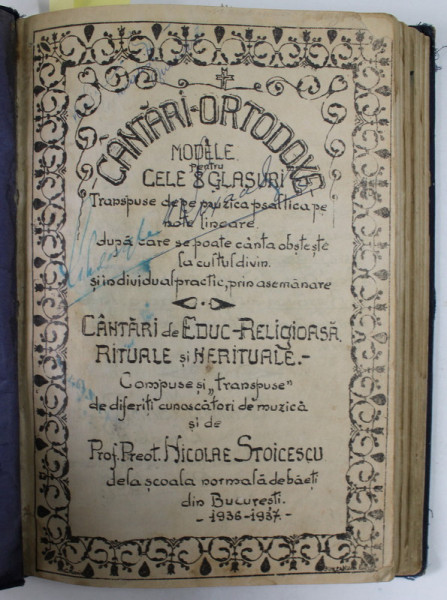 CÂNTĂRI-ORTODOXE
MODELE
pentru
CELE 8 GLASURI
Transpuse de pe muzica psaltica pe
note lineare.
după care se poate cânta obștește
la cultul divin.
și individual practic, prin asemănare
CÂNTĂRI de EDUC-RELIGIOASĂ.
RITUALE și NERITUALE.-
Compuse și „transpuse"
de diferiți cunoscători de muzică
și de
Prof. Preot. NICOLAE STOICESCU
dela școala normală de băeți
din București.
-1936-1937.-